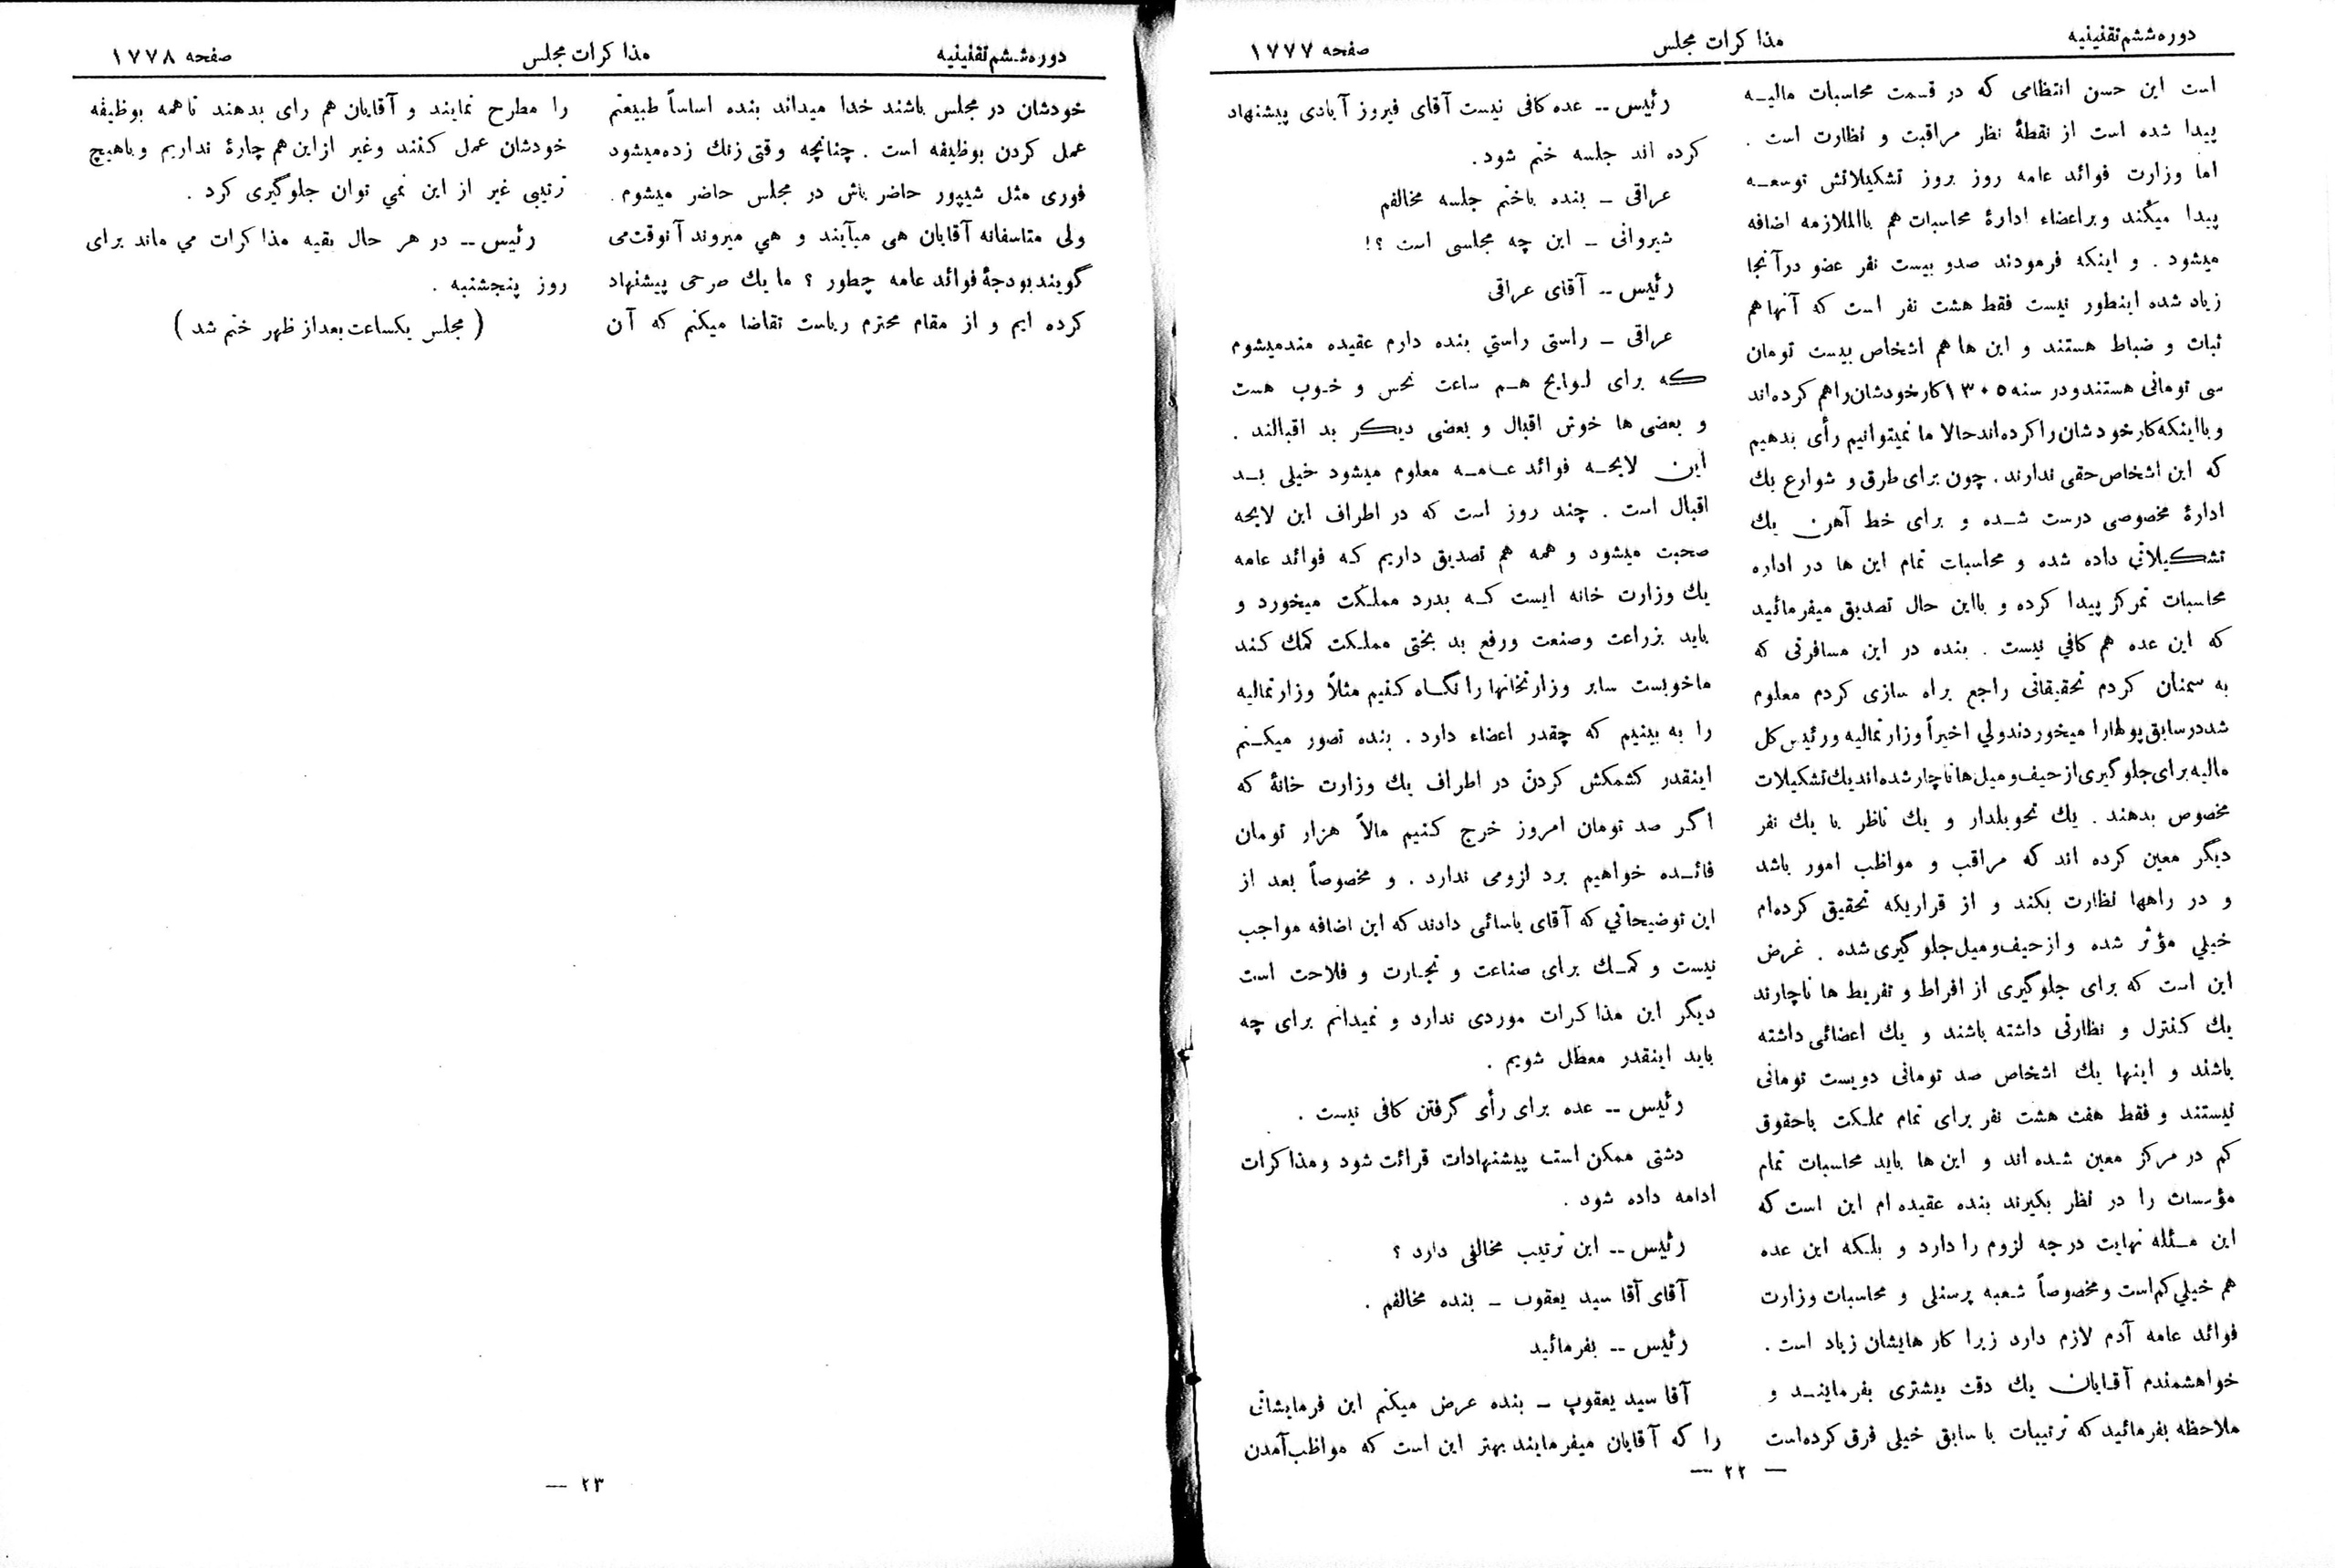 دوره ششم تقنینیه
مذاکرات مجلس
صفحه ۱۷۷۷
است این حسن انتظامی که در قسمت محاسبات مالیـه
پیدا شده است از نقطهٔ نظر مراقبت و نظارت است .
اما وزارت فوائد عامه روز بروز تشکیلاتش توسعـه
پیدا میکند و بر اعضاء ادارهٔ محاسبات هم باالملازمه اضافه
میشود . و اینکه فرمودند صدو بیست نفر عضو در آنجا
زیاد شده اینطور نیست فقط هشت نفر است که آنها هم
ثبات و ضباط هستند و این ها هم اشخاص بیست تومان
سی تومانی هستند و در سنه ۱۳۰۵ کار خودشان را هم کرده اند
و با اینکه کار خودشان را کرده اند حالا ما نمیتوانیم رأی بدهیم
که این اشخاص حقی ندارند . چون برای طرق و شوارع یك
ادارهٔ مخصوصی درست شـده و برای خط آهن یك
تشکیلاتی داده شده و محاسبات تمام این ها در اداره
محاسبات تمرکز پیدا کرده و بااین حال تصدیق میفرمائید
که این عده هم کافی نیست . بنده در این مسافرتی که
به سمنان کردم تحقیقاتی راجع براه سازی کردم معلوم
شد در سابق پولها را میخوردند ولی اخیراً وزارتمالیه و رئیس کل
مالیه برای جلوگیری از حیف و میل ها ناچار شده اند یك تشکیلات
مخصوص بدهند . یك تحویلدار و یك ناظر با یك نفر
دیگر معین کرده اند که مراقب و مواظب امور باشد
و در راهها نظارت بکند و از قراریکه تحقیق کرده ام
خیلی مؤثر شده و از حیف و میل جلوگیری شده . غرض
این است که برای جلوگیری از افراط و تفریط ها ناچارند
یك کنترل و نظارتی داشته باشند و یك اعضائی داشته
باشند و اینها یك اشخاص صد تومانی دویست تومانی
نیستند و فقط هفت هشت نفر برای تمام مملکت باحقوق
کم در مرکز معین شده اند و این ها باید محاسبات تمام
مؤسسات را در نظر بگیرند بنده عقیده ام این است که
این مسئله نهایت درجه لزوم را دارد و بلکه این عده
هم خیلی کم است و مخصوصاً شعبه پرسنلی و محاسبات وزارت
فوائد عامه آدم لازم دارد زیرا کار هایشان زیاد است .
خواهشمندم آقایان یك دقت بیشتری بفرماینـد و
ملاحظه بفرمائید که ترتیبات با سابق خیلی فرق کرده است
رئیس -- عده کافی نیست آقای فیروز آبادی پیشنهاد
کرده اند جلسه ختم شود .
عراقی ـ بنده باختم جلسه مخالفم
شیروانی ـ این چه مجلسی است ؟!
رئیس -- آقای عراقی
عراقی ـ راستی راستي بنده دارم عقیده مند میشوم
که برای لوایح هـم ساعت نحس و خوب هست
و بعضی ها خوش اقبال و بعضی دیکر بد اقبالند .
این لایحـه فوائد عـامـه معلوم میشود خیلی بـد
اقبال است . چند روز است که در اطراف این لایحه
صحبت میشود و همه هم تصدیق داریم که فوائد عامه
یك وزارت خانه ایست کـه بدرد مملکت میخورد و
باید بزراعت و صنعت و رفع بد بختی مملکت کمك کند
ما خوبست سایر وزارتخانها را نگاه کنیم مثلاً وزارتمالیه
را به بینیم که چقدر اعضاء دارد . بنده تصور میکنم
اینقدر کشمکش کردن در اطراف یك وزارت خانهٔ که
اگر صد تومان امروز خرج کنیم مالاً هزار تومان
فائـده خواهیم برد لزومی ندارد . و مخصوصاً بعد از
این توضیحاتي که آقای یاسائی دادند که این اضافه مواجب
نیست و کمـك برای صناعت و تجارت و فلاحت است
دیگر این مذاکرات موردی ندارد و نمیدانم برای چه
باید اینقدر معطل شویم .
رئیس -- عده برای رأی گرفتن کافی نیست .
دشتی ممکن است پیشنهادات قرائت شود و مذاکرات
ادامه داده شود .
رئیس -- این ترتیب مخالفی دارد ؟
آقای آقا سید یعقوب ـ بنده مخالفم .
رئیس -- بفرمائید
آقا سید یعقوب ـ بنده عرض میکنم این فرمایشاتی
را که آقایان میفرمایند بهتر این است که مواظب آمدن
— ۲۲ —
دوره ششم تقنینیه
مذاکرات مجلس
صفحه ۱۷۷۸
خودشان در مجلس باشند خدا میداند بنده اساساً طبیعتم
عمل کردن بوظیفه است . چنانچه وقتی زنك زده میشود
فوری مثل شیپور حاضر باش در مجلس حاضر میشوم .
ولی متاسفانه آقایان هی میآیند و هي میروند آنوقت می
گویند بودجهٔ فوائد عامه چطور ؟ ما یك طرحی پیشنهاد
کرده ایم و از مقام محترم ریاست تقاضا میکنم که آن
را مطرح نمایند و آقایان هم رای بدهند تا همه بوظیفه
خودشان عمل کنند وغیر از این هم چارهٔ نداریم و باهیچ
ترتیبی غیر از این نمي توان جلوگیری کرد .
رئیس -- در هر حال بقیه مذاکرات مي ماند برای
روز پنجشنبه .
( مجلس یکساعت بعد از ظهر ختم شد )
— ۲۳